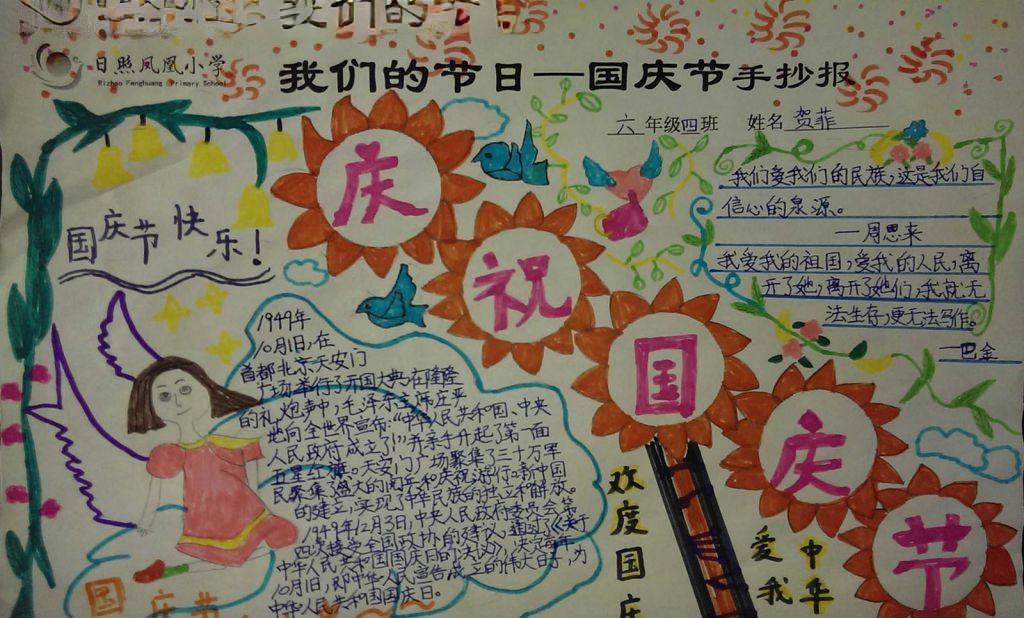 我们的节
日照凤凰小学
Rizhao Fenghuang Primary School
我们的节日—国庆节手抄报
六年级四班 姓名 贺菲
庆
祝
国
庆
节
国庆节快乐！
我们爱我们的民族，这是我们自
信心的泉源。
—周恩来
我爱我的祖国，爱我的人民，离
开了她，离开了她们，我就无
法生存，更无法写作。
—巴金
1949年
10月1日，在
首都北京天安门
广场举行了开国大典，在隆隆
的礼炮声中，毛泽东主席庄严
地向全世界宣布：“中华人民共和国、中央
人民政府成立了！”并亲手升起了第一面
五星红旗。天安门广场聚集了三十万军
民聚集了盛大的阅兵和庆祝游行。新中国
的建立，实现了中华民族的独立和解放。
1949年12月3日，中央人民政府委员会第
四次接受全国政协的建议，通过了《关于
中华人民共和国国庆日的决议》，决定每年
10月1日，即中华人民宣告成立的伟大日子，为
中华人民共和国国庆日。
欢度国庆
爱我
中华
国庆节